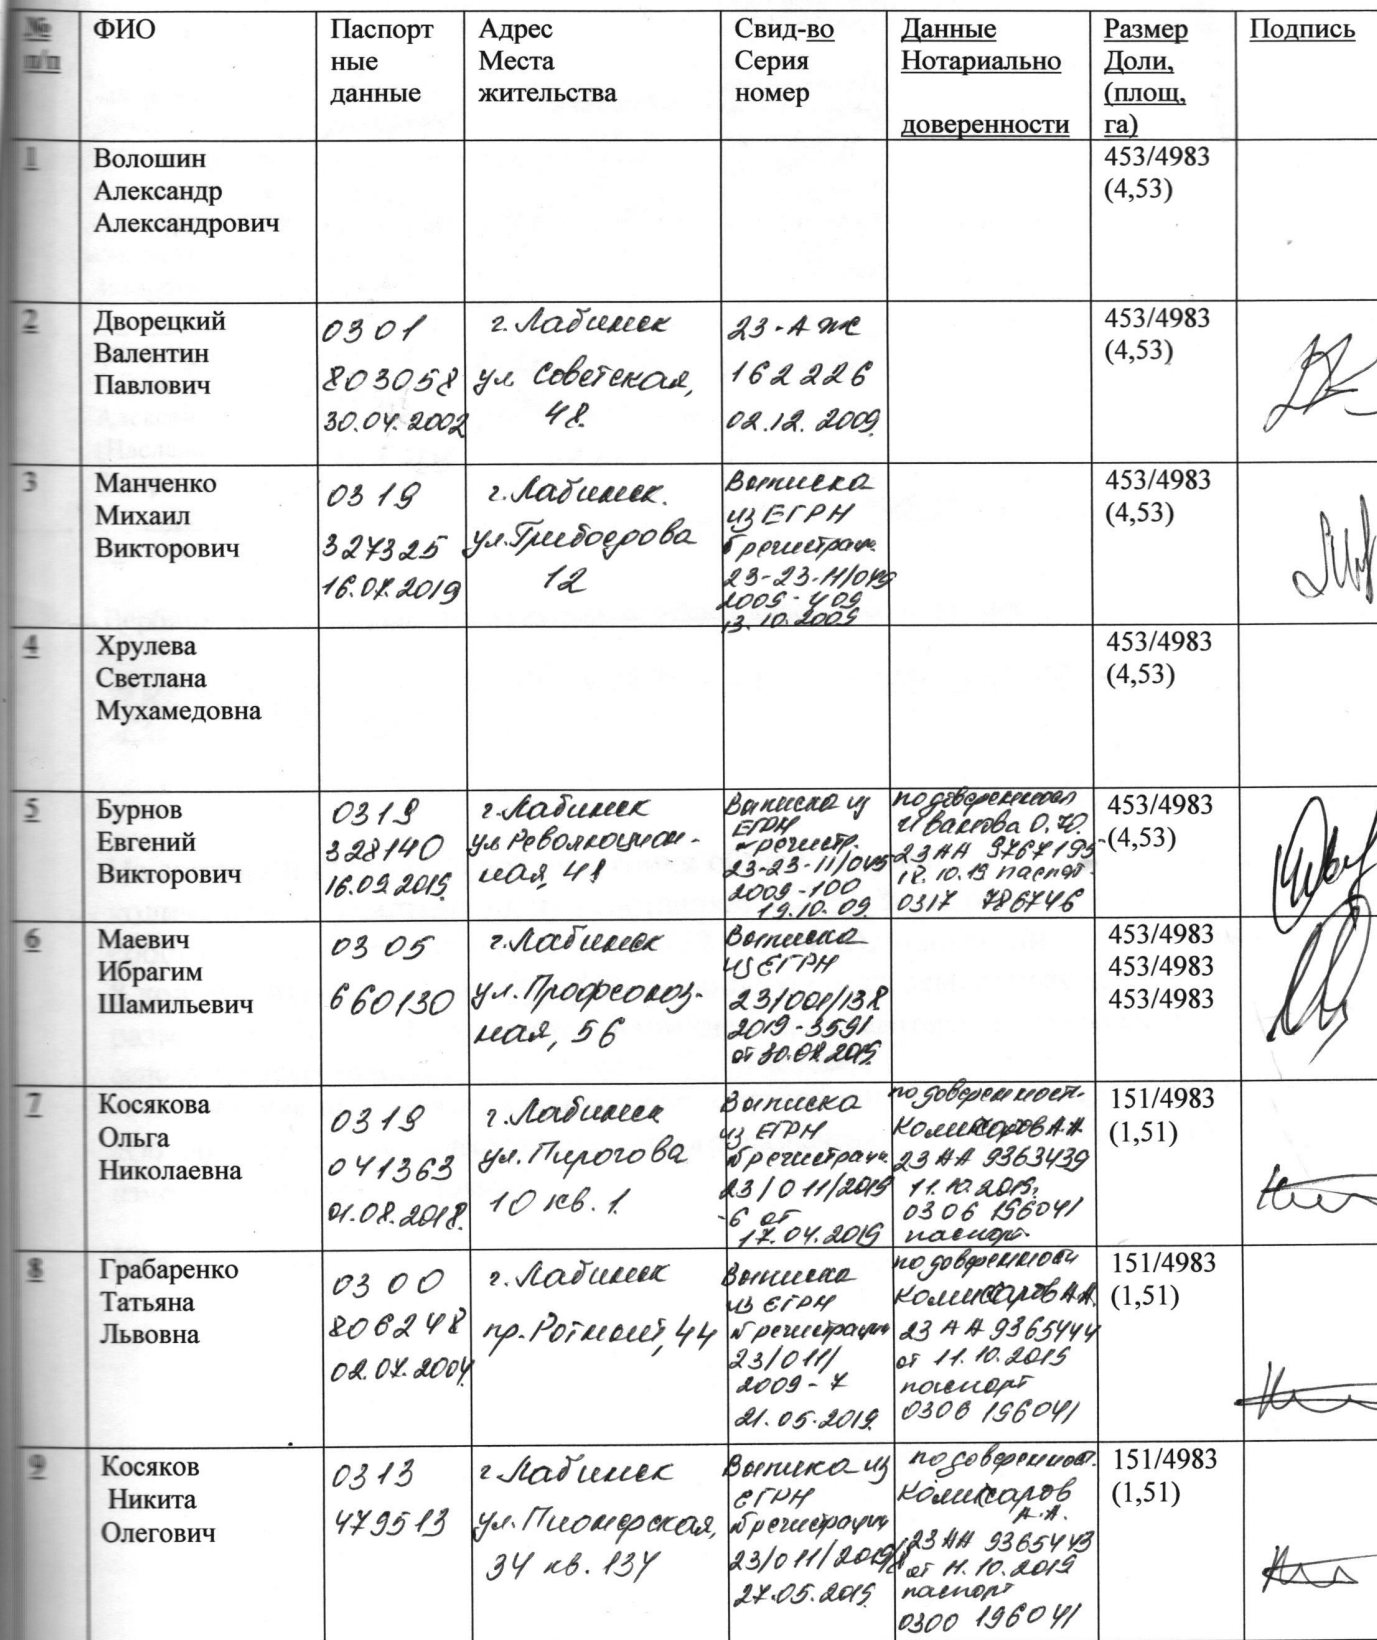 № п/п
ФИО
Паспорт
ные
данные
Адрес
Места
жительства
Свид-во
Серия
номер
Данные
Нотариально
доверенности
Размер
Доли,
(площ,
га)
Подпись
1
Волошин
Александр
Александрович
453/4983
(4,53)
2
Дворецкий
Валентин
Павлович
0301
803058
30.04.2002
г. Лабинск
ул Советская,
48
23-АЖ
162226
02.12.2009
453/4983
(4,53)
3
Манченко
Михаил
Викторович
0319
327325
16.07.2019
г. Лабинск.
ул. Грибоедова
12
Выписка
из ЕГРН
23-23-11/049
13.10.2009
453/4983
(4,53)
4
Хрулева
Светлана
Мухамедовна
453/4983
(4,53)
5
Бурнов
Евгений
Викторович
0319
328140
16.09.2019
г. Лабинск
ул Революцион-
ная, 48
Выписка из
ЕГРН
2009-100
19.10.09
23АА 9767195
паспорт
0317 786746
453/4983
(4,53)
6
Маевич
Ибрагим
Шамильевич
03 05
660130
г. Лабинск
ул. Профсоюз-
ная, 56
Выписка
из ЕГРН
23/001/138
2019-3591
453/4983
453/4983
453/4983
7
Косякова
Ольга
Николаевна
0319
041363
01.08.2018.
г. Лабинск
ул. Пирогова
10 кв. 1
Выписка
из ЕГРН
№ регистрации
23/011/2019
-6 от
17.04.2019
по доверенност.
Комиссаров АА
23 АА 9363439
11.10.2019.
0306 196041
паспорт.
151/4983
(1,51)
8
Грабаренко
Татьяна
Львовна
03 00
806248
02.07.2004
г. Лабинск
44
Выписка
из ЕГРН
№ регистрации
23/011/
2009-7
21.05.2019
по доверенности
Комиссаров АА.
23 АА 9365444
от 11.10.2019
паспорт
0306 196041
151/4983
(1,51)
9
Косяков
Никита
Олегович
0313
479513
г Лабинск
ул. Пионерская,
34 кв. 134
Выписка из
ЕГРН
№ регистрации
27.05.2019
по доверенност.
Комиссаров
А.А.
23АА 9365443
от 11.10.2019
паспорт
0300 196041
151/4983
(1,51)